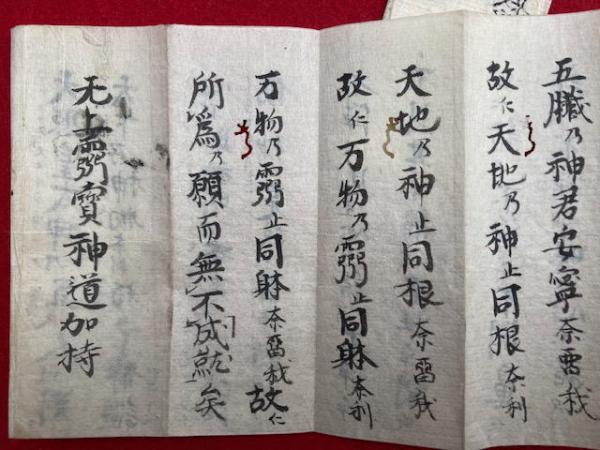 五臓乃神君安寧奈留我
故仁天地乃神止同根奈利
天地乃神止同根奈留我
故仁万物乃霊止同躰奈利
万物乃霊止同躰奈留我故仁
所為乃願而無不成就矣
无上霊寶神道加持